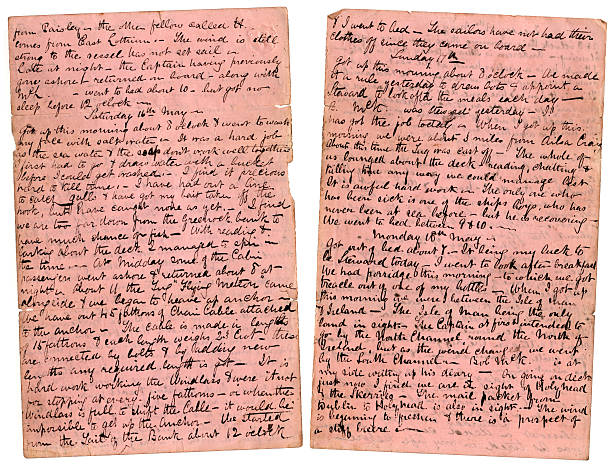 from Paisley - the other fellow called H.
comes from East Lothian. The wind is still
strong so the vessel has not set sail -
Late at night - the Captain having previously
gone ashore returned on board - along with
McK - went to bed about 10 - but got no
sleep before 12 oclock -
Saturday 16th May -
Got up this morning about 8 oclock & went to wash
my face with salt water - It was a hard job
as the sea water & the soap dont work well together
First had to draw water with a bucket
before I could get washed - I find it precious
hard to kill time. I have had out a line
to catch gulls & have got my bait taken off the
hook, but have caught none as yet - I find
we are too far down from the Greenock bank to
have much chance of fish - With reading &
walking about the deck I managed to spin
the time - At Midday some of the Cabin
passengers went ashore & returned about 8 at
night - About 11 the Tug "Flying Meteor" came
alongside & we began to heave up anchor -
We have out 45 fathoms of Chain Cable attached
to the anchor - The Cable is made in lengths
of 15 fathoms & each length weighs 23½ Cwt - these
are connected by bolts & by adding new
lengths any required length is got - It is
hard work working the Windlass & were it not
for stopping at every five fathoms - or when the
Windlass is full to shift the Cable - it would be
impossible to get up the Anchor - We started
from the Tail of the Bank about 12 oclock
& I went to bed - The sailors have not had their
clothes off since they came on board -
Sunday 17th
Got up this morning about 8 oclock - We made
a rule yesterday to draw lots & appoint a
Steward to look after the meals each day -
McK. was Steward yesterday - H
has got the job today - When I got up this
morning we were about 5 miles from Ailsa Craig
about this time the Tug was cast off - The whole of
us lounged about the deck reading, chatting &
killing time any way we could manage best
It is awful hard work - The only one who
has been sick is one of the ships Boys, who has
never been at sea before - but he is recovering -
We went to bed between 9 & 10 -
Monday 18th May -
Got up at about 8 - It being my luck to
be Steward today - I went to look after breakfast
We had porridge this morning - to which we got
treacle out of one of my bottles - When I got up
this morning we were between the Isle of man
& Ireland - The Isle of Man being the only
land in sight - The Captain at first intended to
go by the North Channel round the North of
Ireland, but as the wind changed we went
by the South Channel - McK. is at
my side writing up his diary - On going on deck
just now I find we are in sight of Holyhead
& the Skerries - The mail packet from
Dublin to Holyhead is also in sight - The wind
is beginning to freshen & there is a prospect of
a stiff breeze -